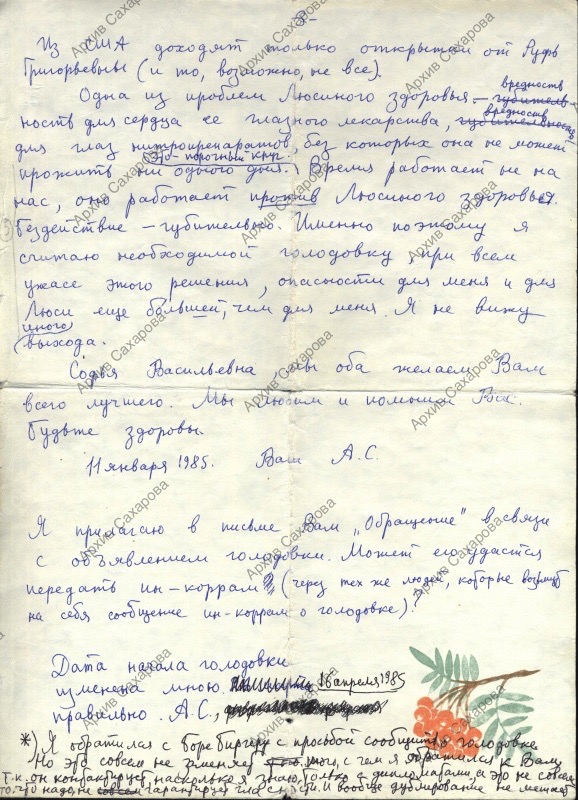 -8-
Из США доходят только открытки от Руфь
Григорьевны (и то, возможно, не все).
Одна из проблем Люсиного здоровья – губитель- вредность
ность для сердца ее глазного лекарства, губительность вредность
для глаз нитропрепаратов, без которых она не может
прожить ни одного дня. (Это – порочный круг. Время работает не на
нас, оно работает против Люсиного здоровья.
Бездействие – губительно. Именно поэтому я
считаю необходимой голодовку, при всем
ужасе этого решения, опасности для меня и для
Люси еще большей, чем для меня. Я не вижу
иного
выхода.
Софья Васильевна, мы оба желаем Вам
всего лучшего. Мы любим и помним Вас.
Будьте здоровы.
11 января 1985. Ваш А.С.
Я прилагаю в письме Вам „Обращение" в связи
с объявлением голодовки. Может его удастся
передать ин-коррам, (через тех же людей, которые возьмут
на себя сообщение ин-коррам о голодовке)?
Дата начала голодовки
изменена мною. 16 апреля 1985
правильно. А.С.,
*) Я обратился к Боре Биргеру с просьбой сообщить о голодовке.
Но это совсем не заменяет того, с чем я обратился к Вам,
т.к. он контактирует, насколько я знаю, только с дипломатами, а это не совсем
то, что надо, не совсем гарантирует гласность. И вообще дублирование не мешает
Архив Сахарова